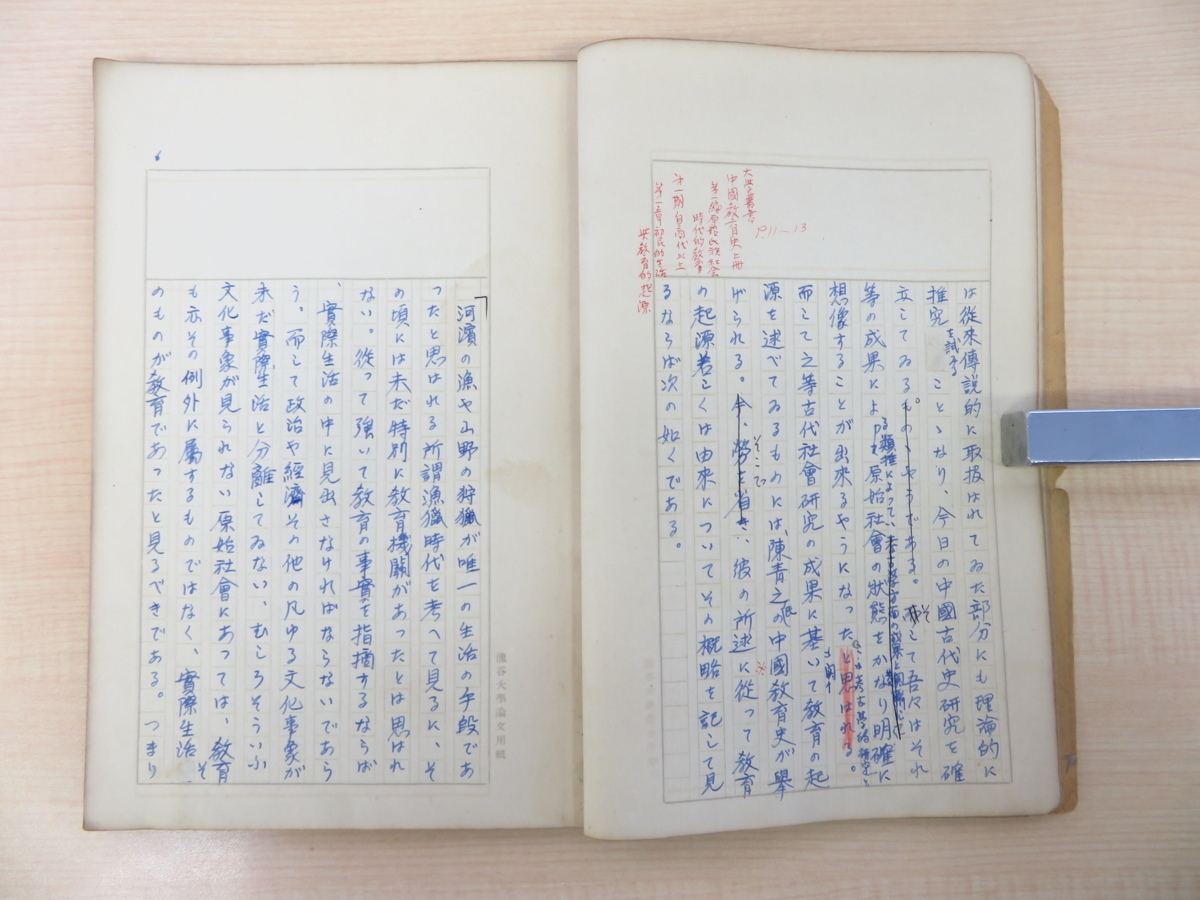 大学叢書
中國教育史上冊
P.11〜13
時代的教育
は從來傳說的に取扱はれてゐた部分にも理論的に
推究を試みることゝなり、今日の中國古代史研究を確
立してゐるものゝやうである。そして吾々はそれ
等の成果により原始社會の狀態をかなり明確に
る類推によつて
想像することが出來るやうになつたと思はれる。
而して之等古代社會硏究の成果に基いて教育の起
源を述べてゐるものには、陳青之氏の中國教育史が擧
げられる。今、勞を省き、彼の所述に從つて教育
そこで
の起源若しくは由來についてその槪略を記して見
るならば次の如くである。
「河濱の漁や山野の狩獵が唯一の生活の手段であ
つたと思はれる所謂漁獵時代を考へて見るに、そ
の頃には未だ特別に教育機關があつたとは思はれ
ない。從つて強いて教育の事實を指摘するならば
、實際生活の中に見出さなければならないであら
う。而して政治や經濟その他の凡ゆる文化事象が
未だ實際生活と分離してゐない、むしろそういふ
文化事象が見られない原始社會にあつては、教育
も亦その例外に屬するものではなく、實際生活そ
のものが教育であつたと見るべきである。つまり
龍谷大學論文用紙